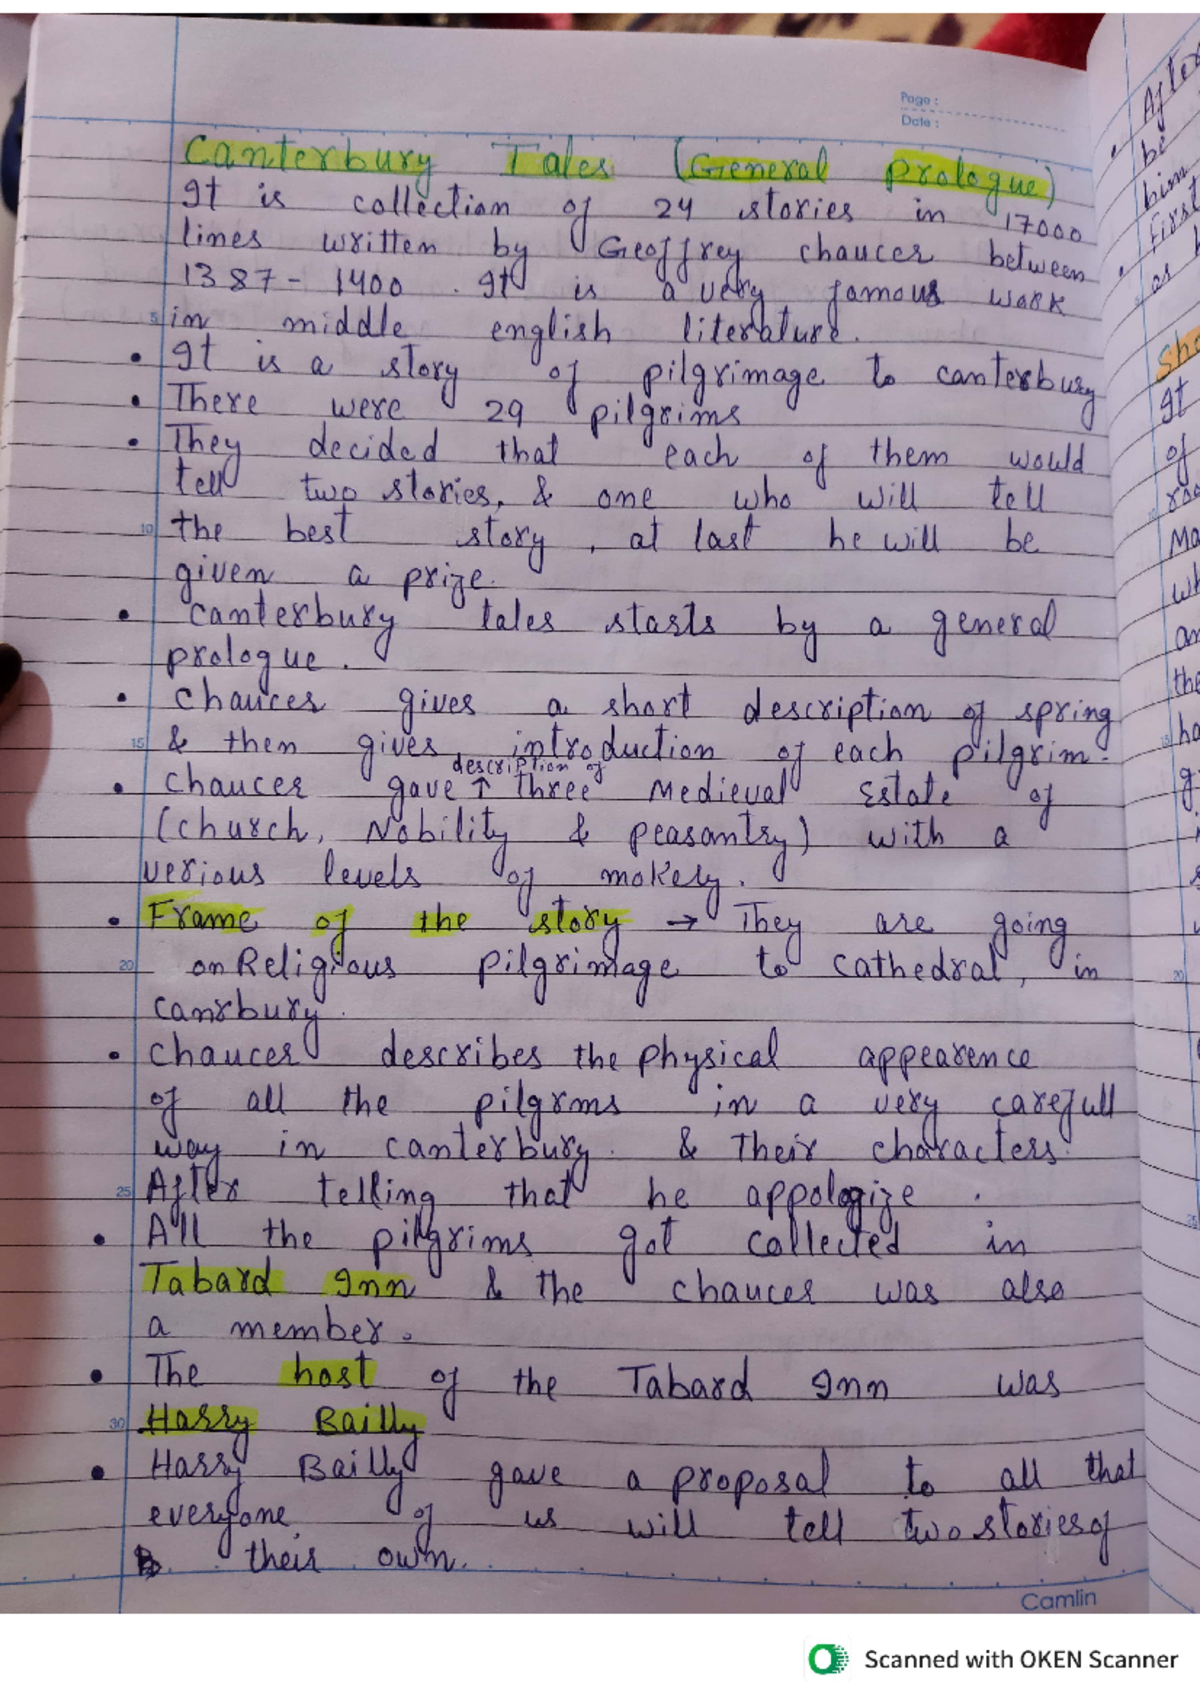 Page :
Date :
Canterbury Tales (General Prologue)
It is collection of 24 stories in 17000
lines written by Geoffrey chaucer between
1387 - 1400 . It is a very famous work
5 in middle english literature.
• It is a story of pilgrimage to canterbury
• There were 29 pilgrims
• They decided that each of them would
tell two stories, & one who will tell
10 the best story , at last he will be
given a prize.
• canterbury tales starts by a general
prologue .
• chaucer gives a short description of spring
15 & then gives introduction of each pilgrim.
description of
• chaucer gave ↑ three Medieval Estate of
(church, Nobility & peasantry) with a
verious levels of mokery.
• Frame of the story → They are going
20 on Religious pilgrimage to cathedral, in
canrbury.
• chaucer describes the physical appearence
of all the pilgrms in a very carefull
way in canterbury. & Their characters.
25 After telling that he appologize .
• All the pilgrims got collected in
Tabard Inn & the chaucer was also
a member.
• The host of the Tabard Inn was
30 Harry Bailly
• Harry Bailly gave a proposal to all that
everyone of us will tell two stories of
their own.
Camlin
Scanned with OKEN Scanner